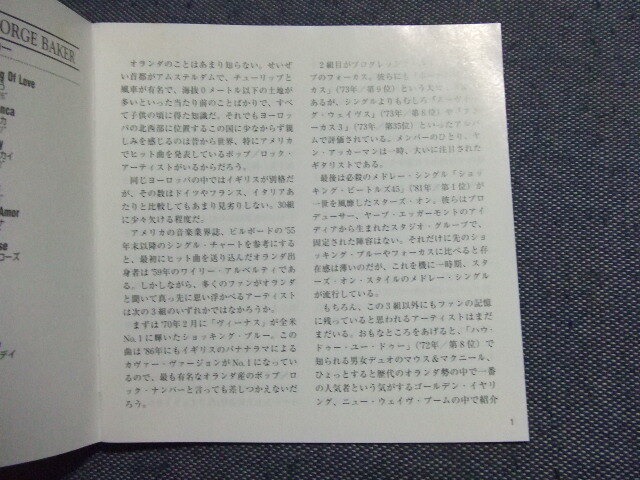 ORGE BAKER
g Of Love
オランダのことはあまり知らない。せいぜ
い首都がアムステルダムで、チューリップと
風車が有名で、海抜0メートル以下の土地が
多いといった当たり前のことばかりで、すべ
て子供の頃に得た知識だ。それでもヨーロッ
パの北西部に位置するこの国に少なからず親し
みを感じるのは昔から世界、特にアメリカ
でヒット曲を発表しているポップ/ロック・
アーティストがいるからだろう。
同じヨーロッパの中ではイギリスが別格だ
が、その数はドイツやフランス、イタリアあ
たりと比較してもあまり見劣りしない。30組
に少々欠ける程度だ。
アメリカの音楽業界誌、ビルボードの'55
年末以降のシングル・チャートを参考にする
と、最初にヒット曲を送り込んだオランダ出
身者は'59年のワイリー・アルベルティであ
る。しかしながら、多くのファンがオランダ
と聞いて真っ先に思い浮かべるアーティスト
は次の3組のいずれかではなかろうか。
まずは'70年2月に「ヴィーナス」が全米
No.1に輝いたショッキング・ブルー。この
曲は'86年にもイギリスのバナナラマによる
カヴァー・ヴァージョンがNo.1になってい
るので、最も有名なオランダ産のポップ/ロ
ック・ナンバーと言っても差しつかえないだ
ろう。
2組目がプログレッシ
プのフォーカス。彼らにも
('73年/第9位)という大ヒ
あるが、シングルよりもむしろ「ムーヴィン
グ・ウェイヴス」('73年/第8位)や「フォ
ーカス3」('73年/第35位)といったアルバ
ムで評価されている。メンバーのひとり、ヤ
ン・アッカーマンは一時、大いに注目された
ギタリストである。
最後は必殺のメドレー・シングル「ショッ
キング・ビートルズ45」('81年/第1位)が
一世を風靡したスターズ・オン。彼らはプロ
デューサー、ヤープ・エッガーモントのアイ
ディアから生まれたスタジオ・グループで、
固定された陣容はない。それだけに先のショ
ッキング・ブルーやフォーカスに比べると存
在感は薄いのだが、これを機に一時期、スタ
ーズ・オン・スタイルのメドレー・シングル
が流行している。
もちろん、この3組以外にもファンの記憶
に残っていると思われるアーティストはまだ
まだいる。おもなところをあげると、「ハウ・
ドゥー・ユー・ドゥー」('72年/第8位)で
知られる男女デュオのマウス&マクニール、
ひょっとすると歴代のオランダ勢の中で一番
の人気者という気がするゴールデン・イヤリ
ング、ニュー・ウェイヴ・ブームの中で紹介
nca
Amor
se
ローズ
デイ
1